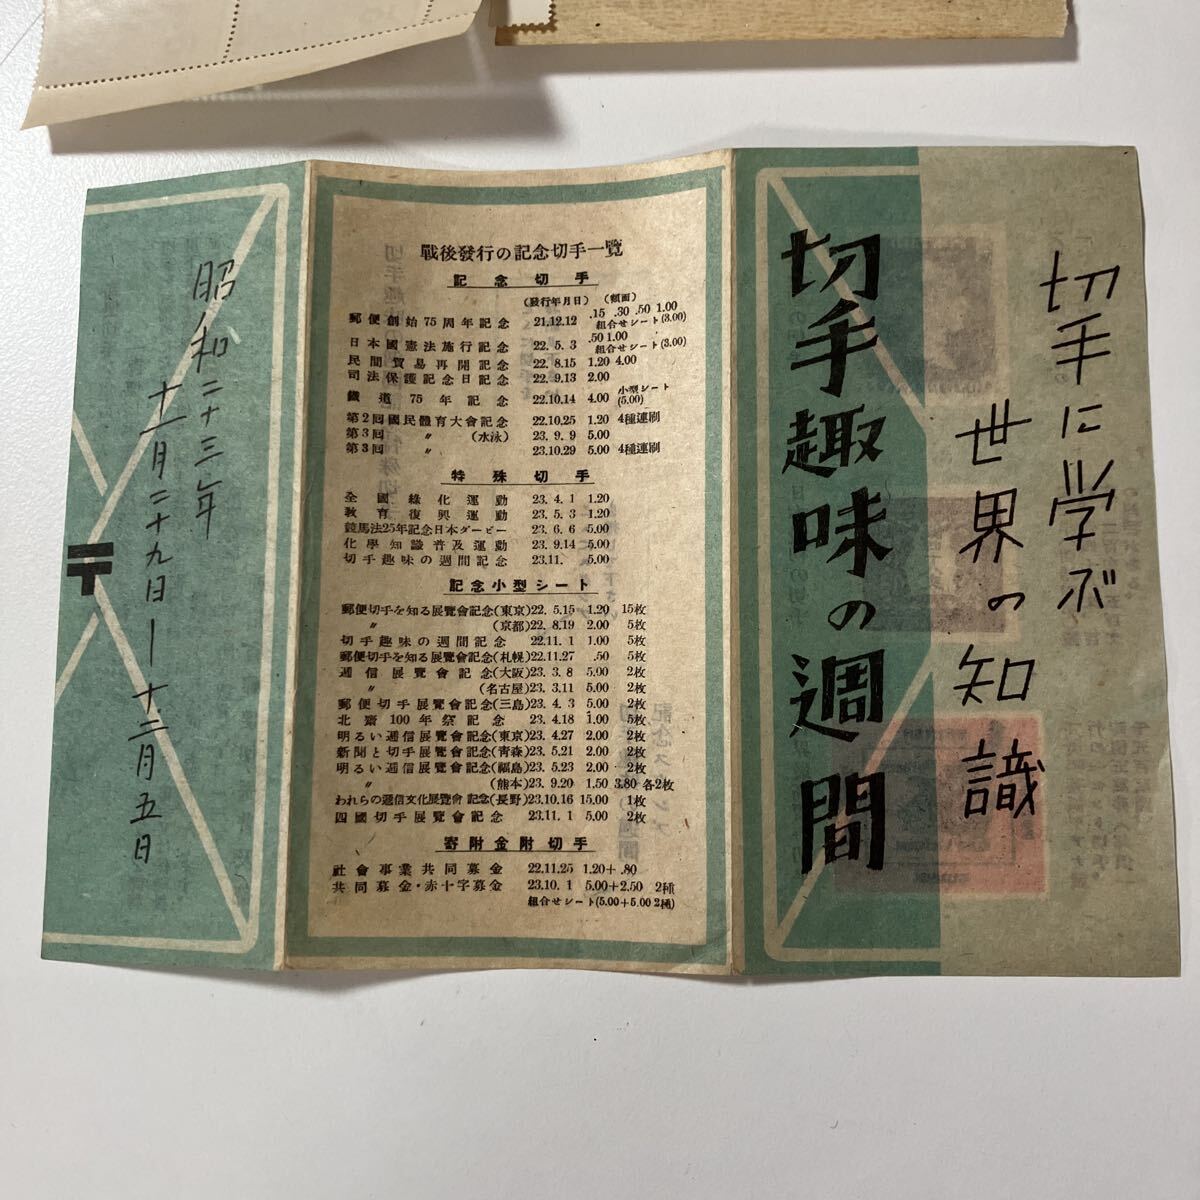 切手に学ぶ
世界の知識
切手趣味の週間
戰後發行の記念切手一覽
記念切手
(發行年月日) (額面)
郵便創始75周年記念 21.12.12 .15 .30 .50 1.00
組合せシート(3.00)
日本國憲法施行記念 22. 5. 3 .50 1.00
組合せシート(3.00)
民間貿易再開記念 22. 8.15 1.20 4.00
司法保護記念日記念 22. 9.13 2.00
鐵道75年記念 22.10.14 4.00 小型シート(5.00)
第2回國民體育大會記念 22.10.25 1.20 4種連刷
第3回 〃 (水泳) 23. 9. 9 5.00
第3回 〃 23.10.29 5.00 4種連刷
特殊切手
全國綠化運動 23. 4. 1 1.20
教育復興運動 23. 5. 3 1.20
競馬法25年記念日本ダービー 23. 6. 6 5.00
化學知識普及運動 23. 9.14 5.00
切手趣味の週間記念 23.11. 5.00
記念小型シート
郵便切手を知る展覽會記念(東京) 22. 5.15 1.20 15枚
〃 (京都) 22. 8.19 2.00 5枚
切手趣味の週間記念 22.11. 1 1.00 5枚
郵便切手を知る展覽會記念(札幌) 22.11.27 .50 5枚
遞信展覽會記念(大阪) 23. 3. 8 5.00 2枚
〃 (名古屋) 23. 3.11 5.00 2枚
郵便切手展覽會記念(三島) 23. 4. 3 5.00 2枚
北齋100年祭記念 23. 4.18 1.00 5枚
明るい遞信展覽會記念(東京) 23. 4.27 2.00 2枚
新聞と切手展覽會記念(靑森) 23. 5.21 2.00 2枚
明るい遞信展覽會記念(福島) 23. 5.23 2.00 2枚
〃 (熊本) 23. 9.20 1.50 3.80 各2枚
われらの遞信文化展覽會記念(長野) 23.10.16 15.00 1枚
四國切手展覽會記念 23.11. 1 5.00 2枚
寄附金附切手
社會事業共同募金 22.11.25 1.20+ .80
共同募金・赤十字募金 23.10. 1 5.00+2.50 2種
組合せシート(5.00+5.00 2種)
昭和二十三年
十一月二十九日―十二月五日
〒